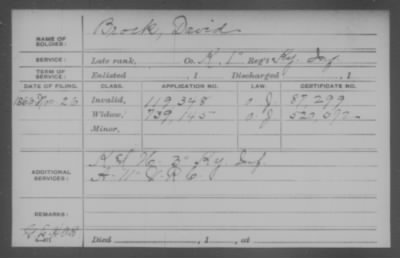 NAME OF SOLDIER: Brock, David
SERVICE: Late rank, Co. K, 1" Reg't Ky. Inf
TERM OF SERVICE: Enlisted , 1 Discharged , 1
DATE OF FILING. CLASS. APPLICATION NO. LAW. CERTIFICATE NO.
Invalid, 119,348 a g. 87,299
Widow, 739,145 a g.
Minor,
ADDITIONAL SERVICES: 3" Ky. Inf.
REMARKS:
Died , 1 , at